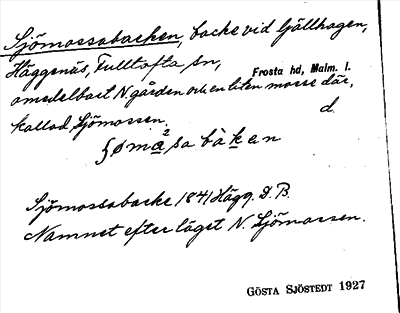 Sjömossabacken, backe vid Ljällhagen,
Häggenäs, Fulltofta sn, Frosta hd, Malm. l.
omedelbart N gården och en liten mosse där, d.
kallad Sjömossen.
Sjömossabacke 1841 Hägg. D.B.
Namnet efter läget N. Sjömossen.
GÖSTA SJÖSTEDT 1927